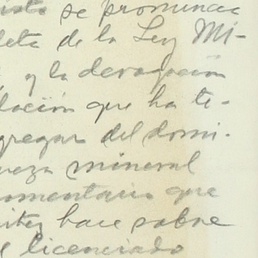 se pronuncia
leta de la Ley Mi-
y la derogación
lación que ha te-
gregar del domi-
reza mineral
omentario que
hace sobre
licenciado